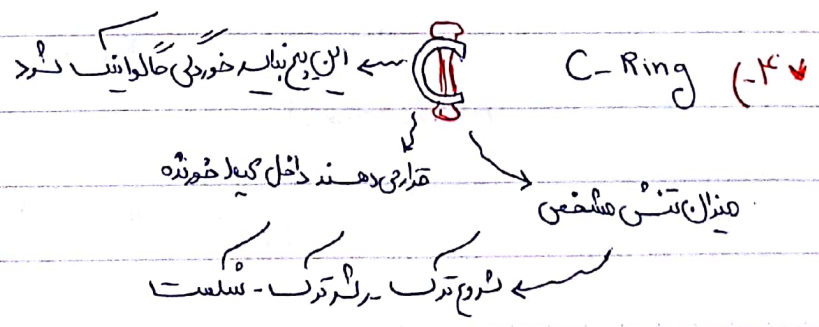 ۴-) C-Ring
این پیچ نباید خوردگی گالوانیک شود
قرار می دهند داخل محیط خورنده
میزان تنش مشخص
شروع ترک - رشد ترک - شکست